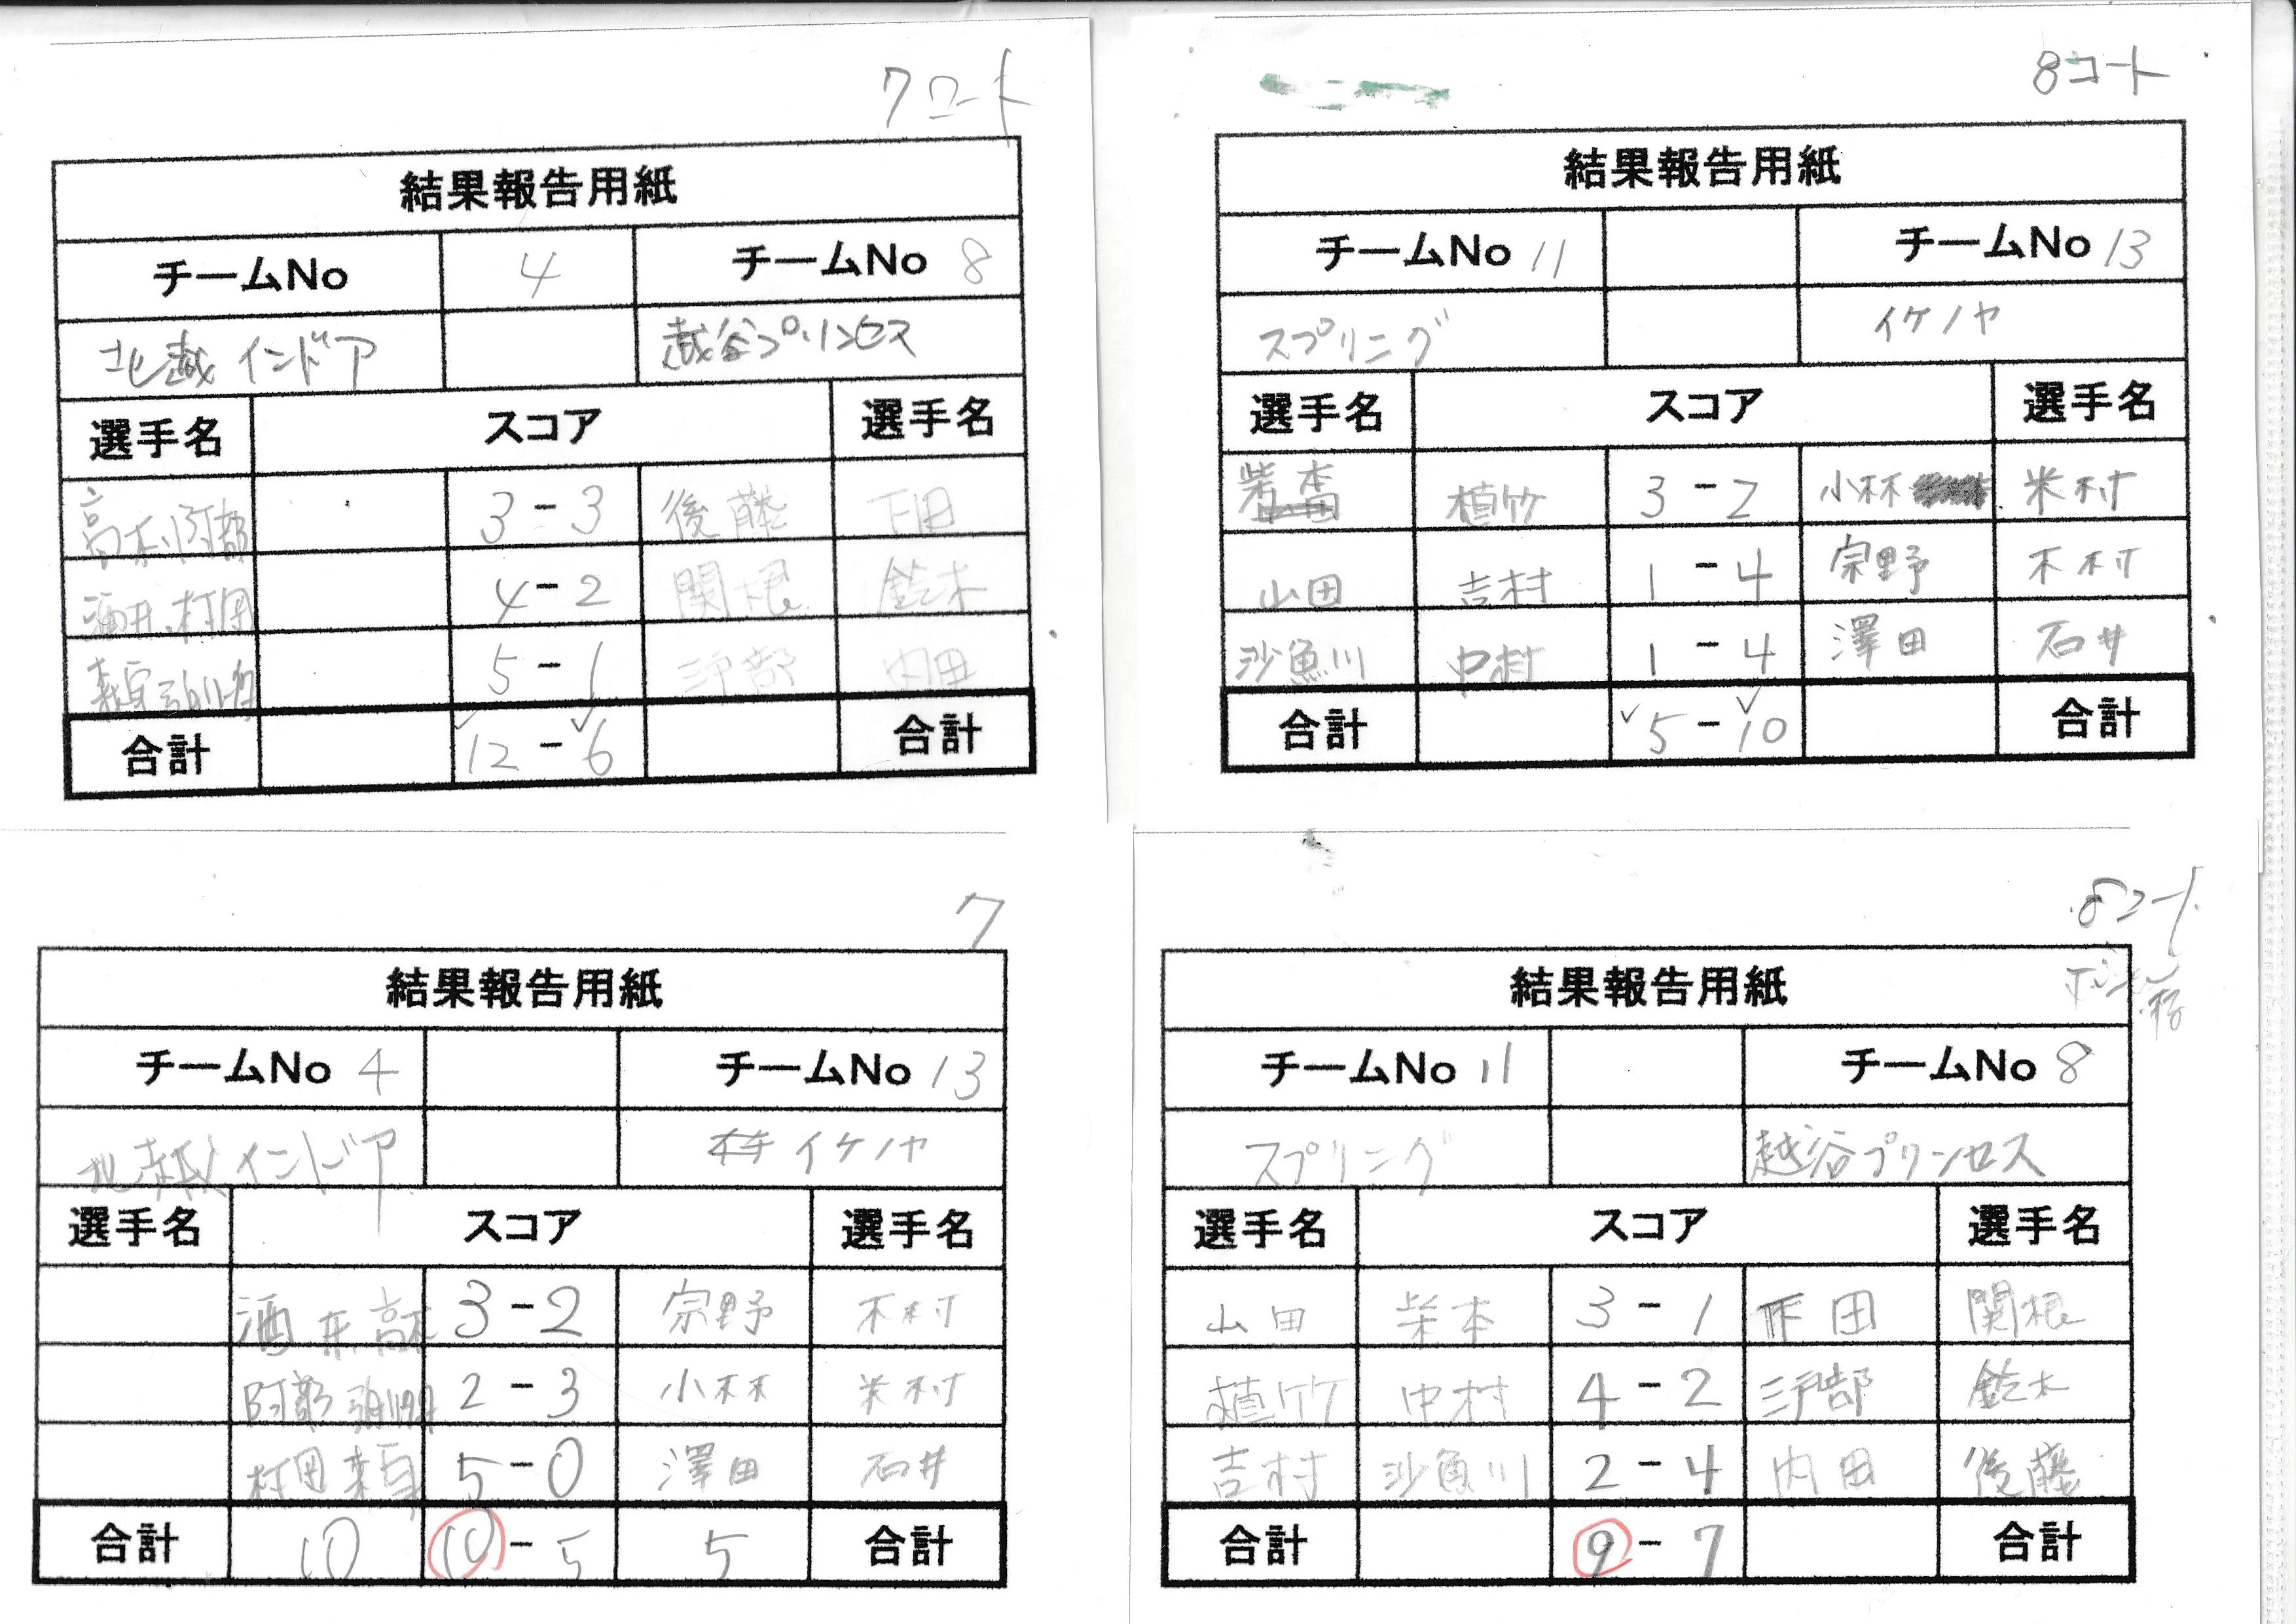 7コート
結果報告用紙
チームNo 4 チームNo 8
北越インドア 越谷プリンセス
選手名 スコア 選手名
高木 阿部 3-3 後藤 下田
酒井 村田 4-2 関根 鈴木
5-1 三戸部 内田
合計 12-6 合計
8コート
結果報告用紙
チームNo 11 チームNo 13
スプリング イケノヤ
選手名 スコア 選手名
柴本 植竹 3-2 小林 米村
山田 吉村 1-4 宗野 木村
沙魚川 中村 1-4 澤田 石井
合計 5-10 合計
7
結果報告用紙
チームNo 4 チームNo 13
北越インドア イケノヤ
選手名 スコア 選手名
酒井 高木 3-2 宗野 木村
阿部 2-3 小林 米村
村田 5-0 澤田 石井
合計 10 10-5 5 合計
8コート
結果報告用紙
チームNo 11 チームNo 8
スプリング 越谷プリンセス
選手名 スコア 選手名
山田 柴本 3-1 下田 関根
植竹 中村 4-2 三戸部 鈴木
吉村 沙魚川 2-4 内田 後藤
合計 9-7 合計